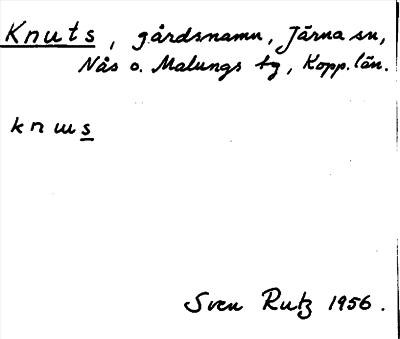 Knuts, gårdsnamn, Järna sn,
Nås o. Malungs tg, Kopp. län.
knɯs
Sven Rutz 1956.